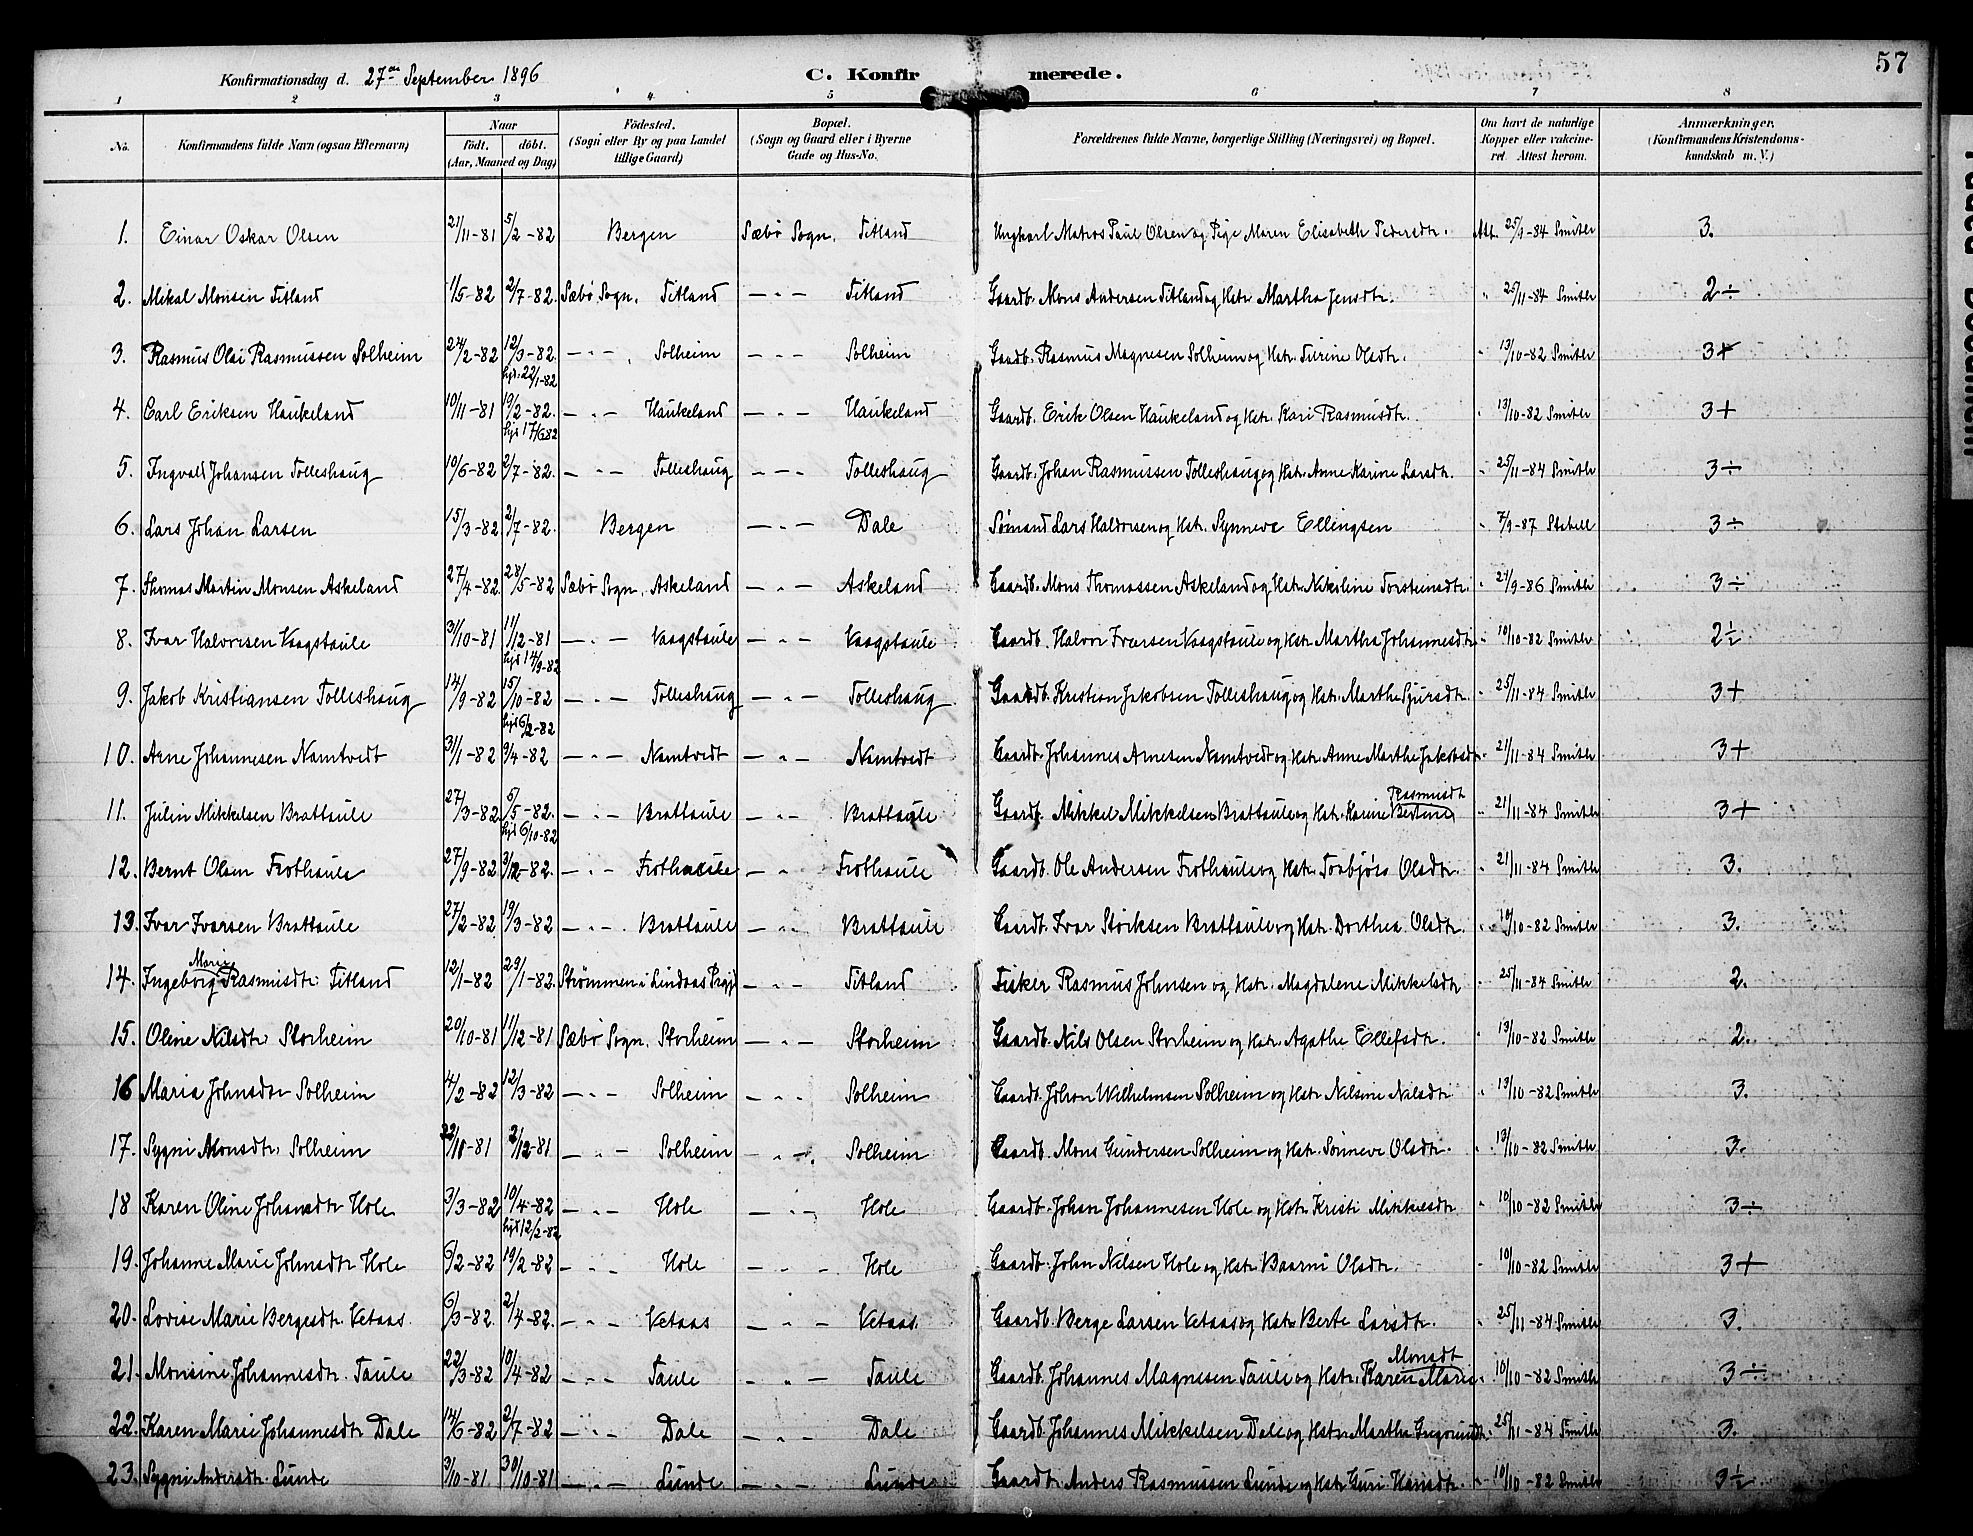 57
Konfirmationsdag d. 27de September 1896 C. Konfirmerede.
1 2 3 4 5 6 7 8
No. Konfirmandens fulde Navn (ogsaa Efternavn) Naar født. døbt. (Aar, Maaned og Dag) Fødested. (Sogn eller By og paa Landet tillige Gaard) Bopæl. (Sogn og Gaard eller i Byerne Gade og Hus-No. Forældrenes fulde Navne, borgerlige Stilling (Næringsvei) og Bopæl. Om havt de naturlige Kopper eller vakcineret. Attest herom. Anmærkninger. (Konfirmandens Kristendomskundskab m. V.)
1. Einar Oskar Olsen 21/11-81 5/2-82 Bergen Sæbø Sogn. Titland Ungkarl Matros Paul Olsen og Pige Maren Elisabeth Pedersdtr. Att. 25/9-84 Smith 3.
2. Mikal Monsen Titland 1/5-82 2/7-82. Sæbø Sogn. Titland — " — Titland Gaardb. Mons Andersen Titland og Hstr. Martha Jensdtr. " 25/11-84 Smith 2÷
3. Rasmus Olai Rasmussen Solheim 24/2-82 12/3-82. — " — Solheim — " — Solheim Gaardb. Rasmus Magnesen Solheim og Hstr. Olsdtr. " 13/10-82 Smith 3+
hjd. 22/1-82
4. Carl Eriksen Haukeland 10/11-81 19/2-82. — " — Haukeland — " — Haukeland Gaardb. Erik Olsen Haukeland og Hstr. Kari Rasmusdtr. " 13/10-82 Smith 3+
hjd 17/6 82
5. Ingvald Johansen Tolleshaug 10/6-82 2/7-82. — " — Tolleshaug — " — Tolleshaug Gaardb. Johan Rasmussen Tolleshaug og Hstr. Anne Karine Larsdtr. " 25/11-84 Smith 3÷
6. Lars Johan Larsen 15/3-82 2/7-82. Bergen — " — Dale Sømand Lars Haldorsen og Hstr. Synneve Ellingsen " 7/9-87 3÷
7. Thomas Martin Monsen Askeland 27/4-82 28/5-82 Sæbø Sogn. Askeland — " — Askeland Gaardb. Mons Thomassen Askeland og Hstr. Nikoline Torsteinsdtr. " 21/9-86 Smith 3÷
8. Ivar Halvorsen Vaagstaule 31/10-81 11/12-81 — " — Vaagstaule — " — Vaagstaule Gaardb. Halvor Iversen Vaagstaule og Hstr. Martha Johannesdtr " 10/10-82 Smith 2½
hjd 14/9-82
9. Jakob Kristiansen Tolleshaug 14/9-82 15/10-82 — " — Tolleshaug — " — Tolleshaug Gaardb. Kristian Jakobsen Tolleshaug og Hstr. Marthe Sjursdtr " 25/11-84 Smith 3+
hjd 6/2-82
10. Arne Johannesen Namtvedt 31/1-82 9/4-82 — " — Namtvedt — " — Namtvedt Gaardb. Johannes Arnesen Namtvedt og Hstr. Anne Marthe Jakobsdtr " 21/11-84 Smith 3+
Rasmusdt
11. Julin Mikkelsen Brattaule 27/3-82 5/5-82. — " — Brattaule — " — Brattaule Gaardb. Mikkel Mikkelsen Brattaule og Hstr. Karine Bertine " 21/11-84 Smith 3+
hjd 6/10-82
12. Bernt Olsen Frothaule 27/9-82 3/12-82. — " — Frothaule — " Frothaule Gaardb. Ole Andersen Frothaule og Hstr. Torbjørs Olsdtr. " 21/11-84 Smith 3.
13. Ivar Ivarsen Brattaule 27/2-82 19/3-82 — " — Brattaule — " Brattaule Gaardb. Ivar Størksen Brattaule og Hstr. Dorthea Olsdtr. " 10/10-82 Smith 3.
Marie
14. Ingeborg Rasmusdtr. Titland 12/1-82 29/1-82. Strømmen i Lindaas Prgj — " — Titland Fisker Rasmus Johnsen og Hstr. Magdalene Mikkelsdtr " 25/11-84 Smith 2.
15. Oline Nilsdtr Storheim 20/10-81 11/12-81 Sæbø Sogn. Storheim — " — Storheim Gaardb. Nils Olsen Storheim og Hstr. Agathe Ellefsdtr. " 13/10-82 Smith 2.
16 Maria Johnsdtr Solheim 4/2-82 12/3-82 — " — Solheim — " Solheim Gaardb. Johan Wilhelmsen Solheim og Hstr Nilsine Nilsdtr " 13/10-82 Smith 3.
17. Sygni Monsdtr. Solheim 22/10-81 2/12-81 — " — Solheim — " — Solheim Gaardb. Mons Gundersen Solheim og Hstr. Sønneve Olsdtr. " 13/10-82 Smith 3.
18 Karen Oline Johansdtr Hole 3/3-82 10/4-82 — " — Hole — " — Hole Gaardb. Johan Johannesen Hole og Hstr Kristi Mikkelsdtr " 10/10-82 Smith 3÷
hjd 12/2-82
19. Johanne Marie Johnsdtr Hole 6/2-82 19/2-82 — " — Hole — " — Hole Gaardb. John Nilsen Hole og Hstr. Baarni Olsdtr. " 10/10-82 Smith 3+
20. Lovise Marie Bergesdtr. Vetaas 6/3-82. 2/4-82. — " — Vetaas — " — Vetaas Gaardb. Berge Larsen Vetaas og Hstr. Berte Larsdtr. " 25/11-84 Smith 3.
Monsdt
21. Monsine Johannesdtr. Taule 22/3-82 10/4-82 — " — Taule — " — Taule Gaardb. Johannes Magnesen Taule og Hstr. Karen Marie " 10/10-82 Smith 3÷
22. Karen Marie Johannesdtr Dale 14/6-82 2/7-82 — " — Dale — " — Dale Gaardb. Johannes Mikkelsen Dale og Hstr. Marthe " 25/11-84 Smith 3.
23. Sygni Andersdtr. Lunde 3/10-81. 30/10-81 — " — Lunde — " — Lunde Gaardb. Anders Rasmussen Lunde og Hstr Guri Hansdtr. " 10/10-82 Smith 3½